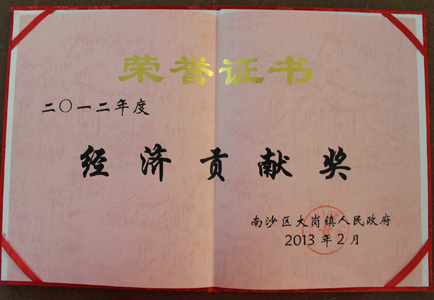 荣誉证书
二〇一二年度
经济贡献奖
南沙区大岗镇人民政府
2013年2月